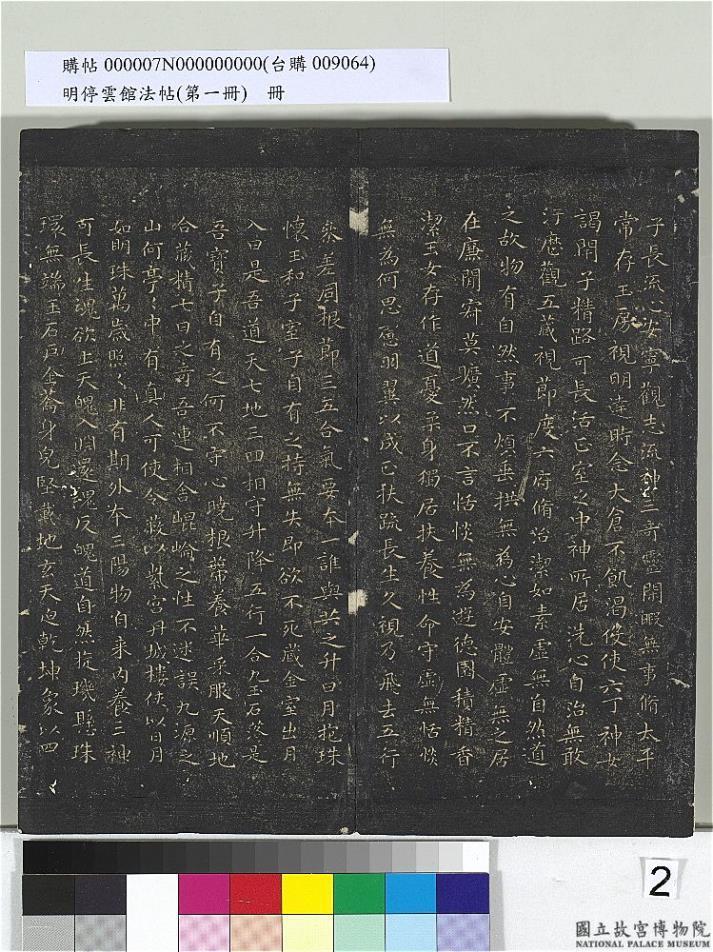 購帖 000007N000000000(台購 009064)
明停雲館法帖(第一冊) 冊
子長流心安寧觀志流神三奇靈閑暇無事脩太平
常存玉房視明達時念大倉不飢渴役使六丁神女
謁閉子精路可長活正室之中神所居洗心自治無敢
汙歷觀五藏視節度六府脩治潔如素虛無自然道
之故物有自然事不煩垂拱無為心自安體虛無之居
在廉閒寂莫曠然口不言恬惔無為遊德園積精香
潔玉女存作道憂柔身獨居扶養性命守虛無恬惔
無為何思慮羽翼以成正扶疏長生久視乃飛去五行
參差同根節三五合氣要本一誰與共之升日月抱珠
懷玉和子室子自有之持無失即欲不死藏金室出月
入日是吾道天七地三四相守升降五行一合九玉石落是
吾寶子自有之何不守心曉根蒂養華采服天順地
合藏精七日之奇吾連相舍崐崘之性不迷誤九源之
山何亭〻中有真人可使令蔽以紫宮丹城樓俠以日月
如明珠萬歲照〻非有期外本三陽物自来內養三神
可長生魂欲上天魄入淵還魂反魄道自然旋璣懸珠
環無端玉石戶金籥身皃堅載地玄天迫乾坤象以四
2
國立故宮博物院
NATIONAL PALACE MUSEUM